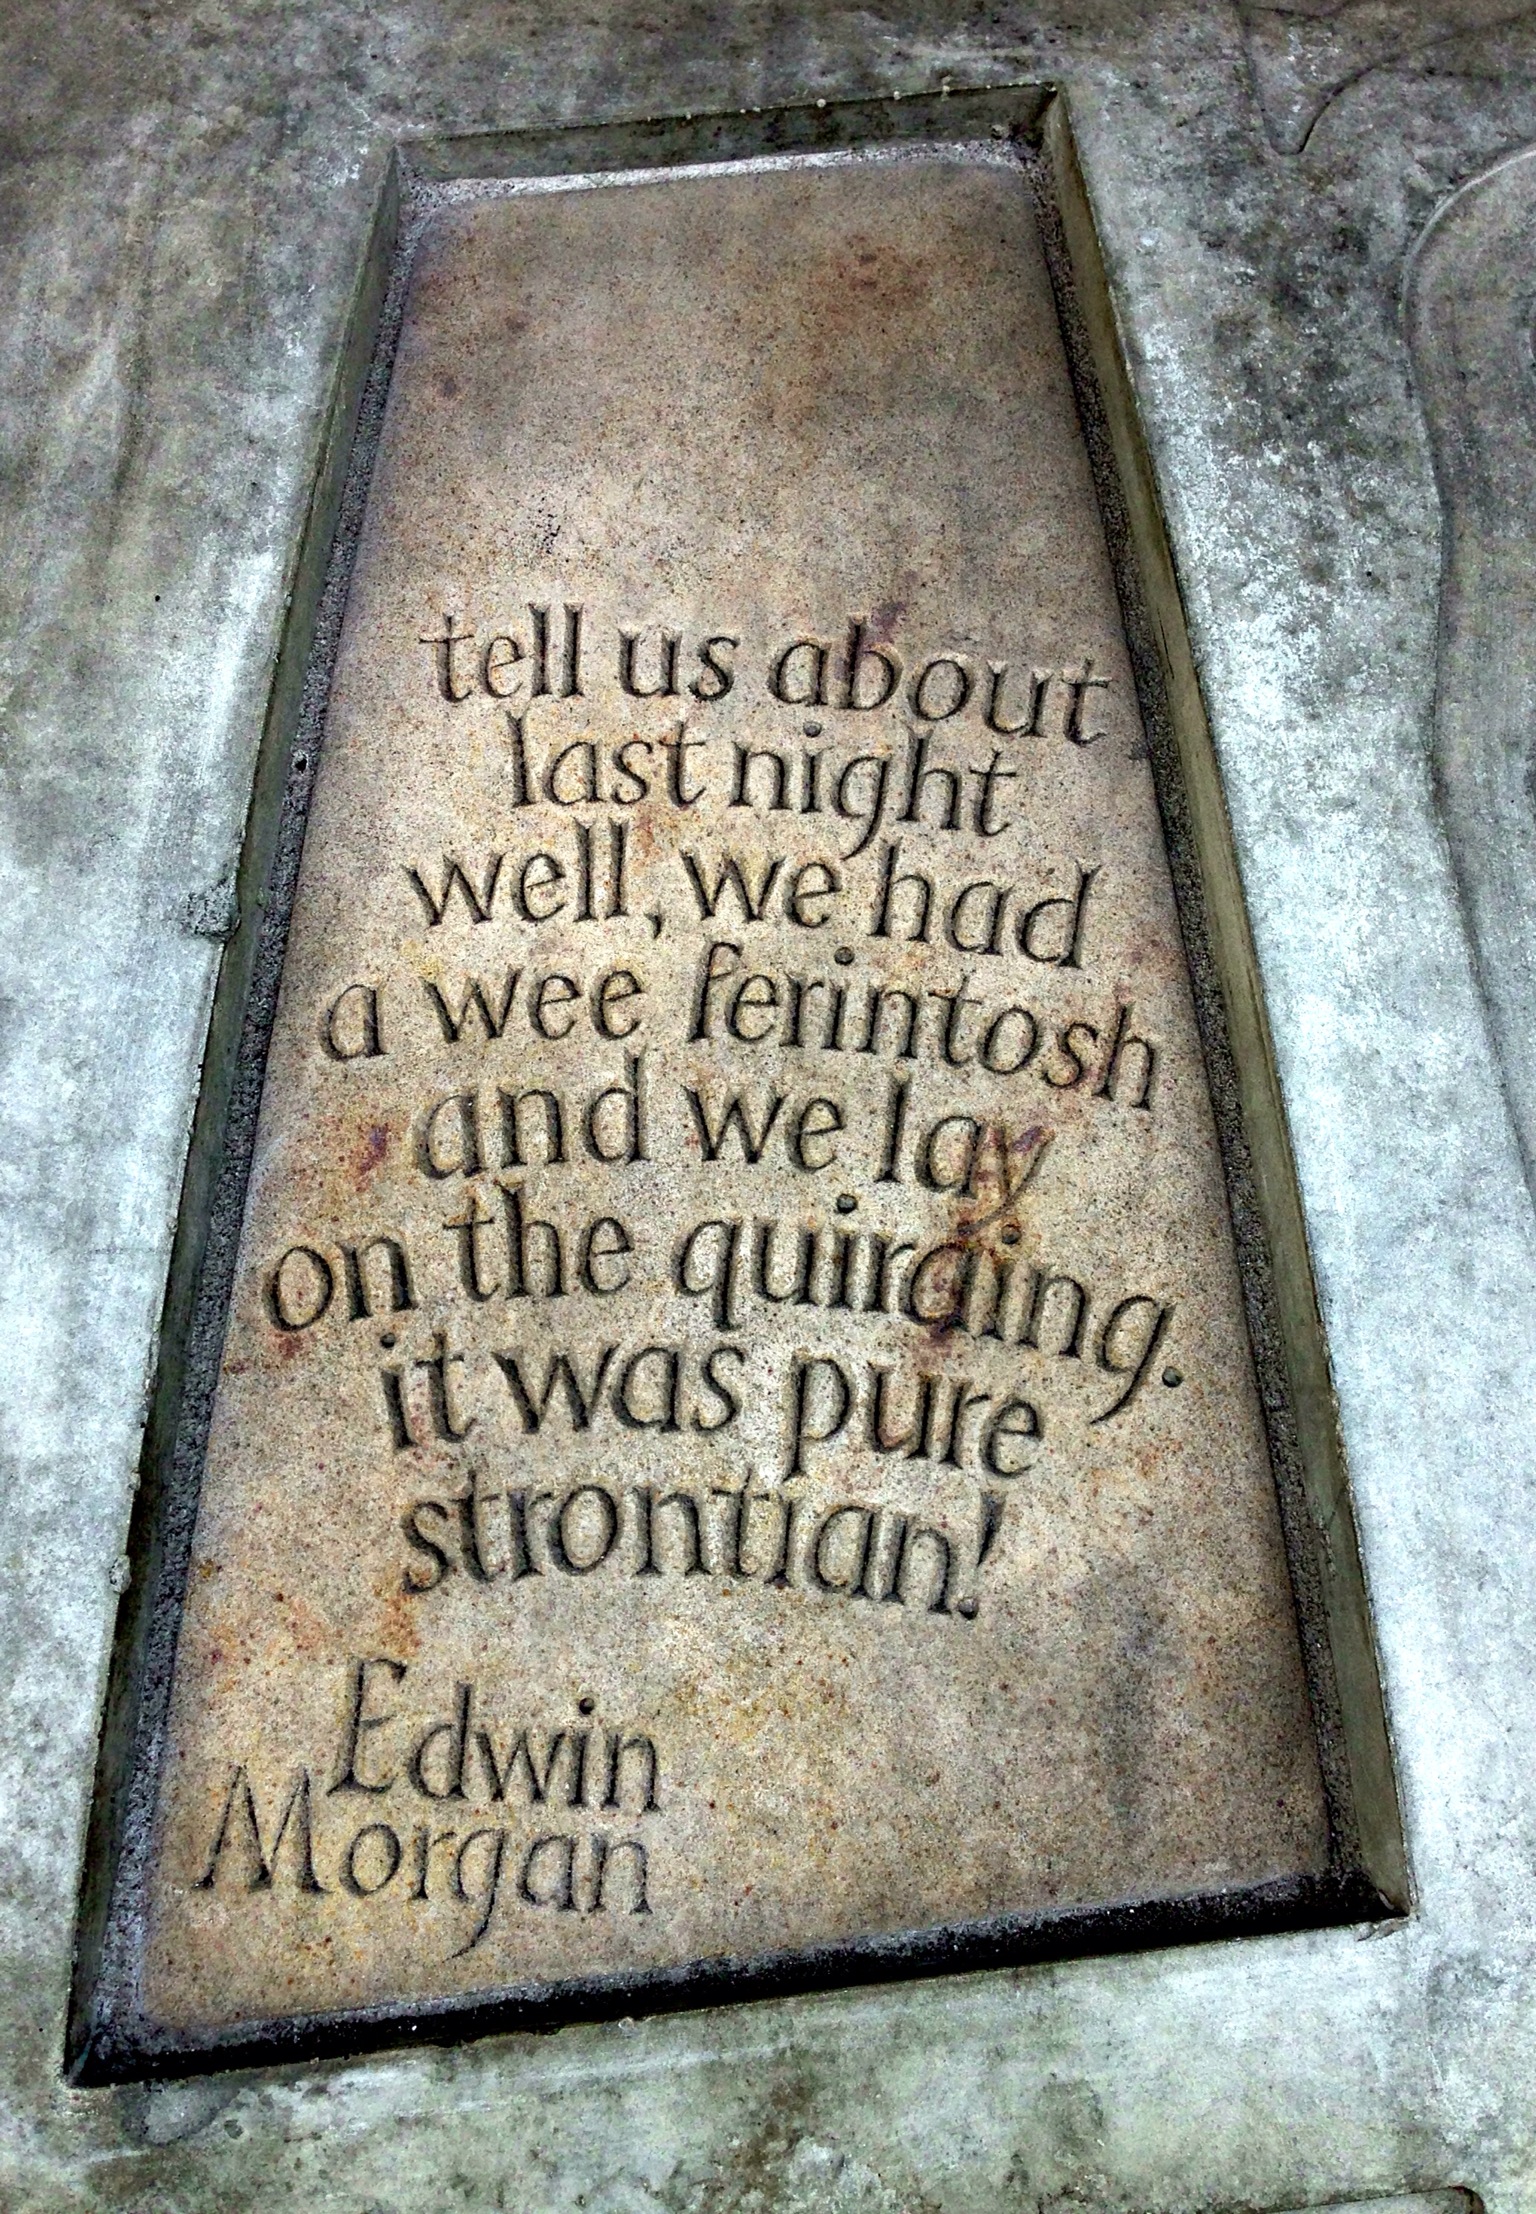 tell us about
last night
well, we had
a wee ferintosh
and we lay
on the quiraing.
it was pure
strontian!
Edwin
Morgan